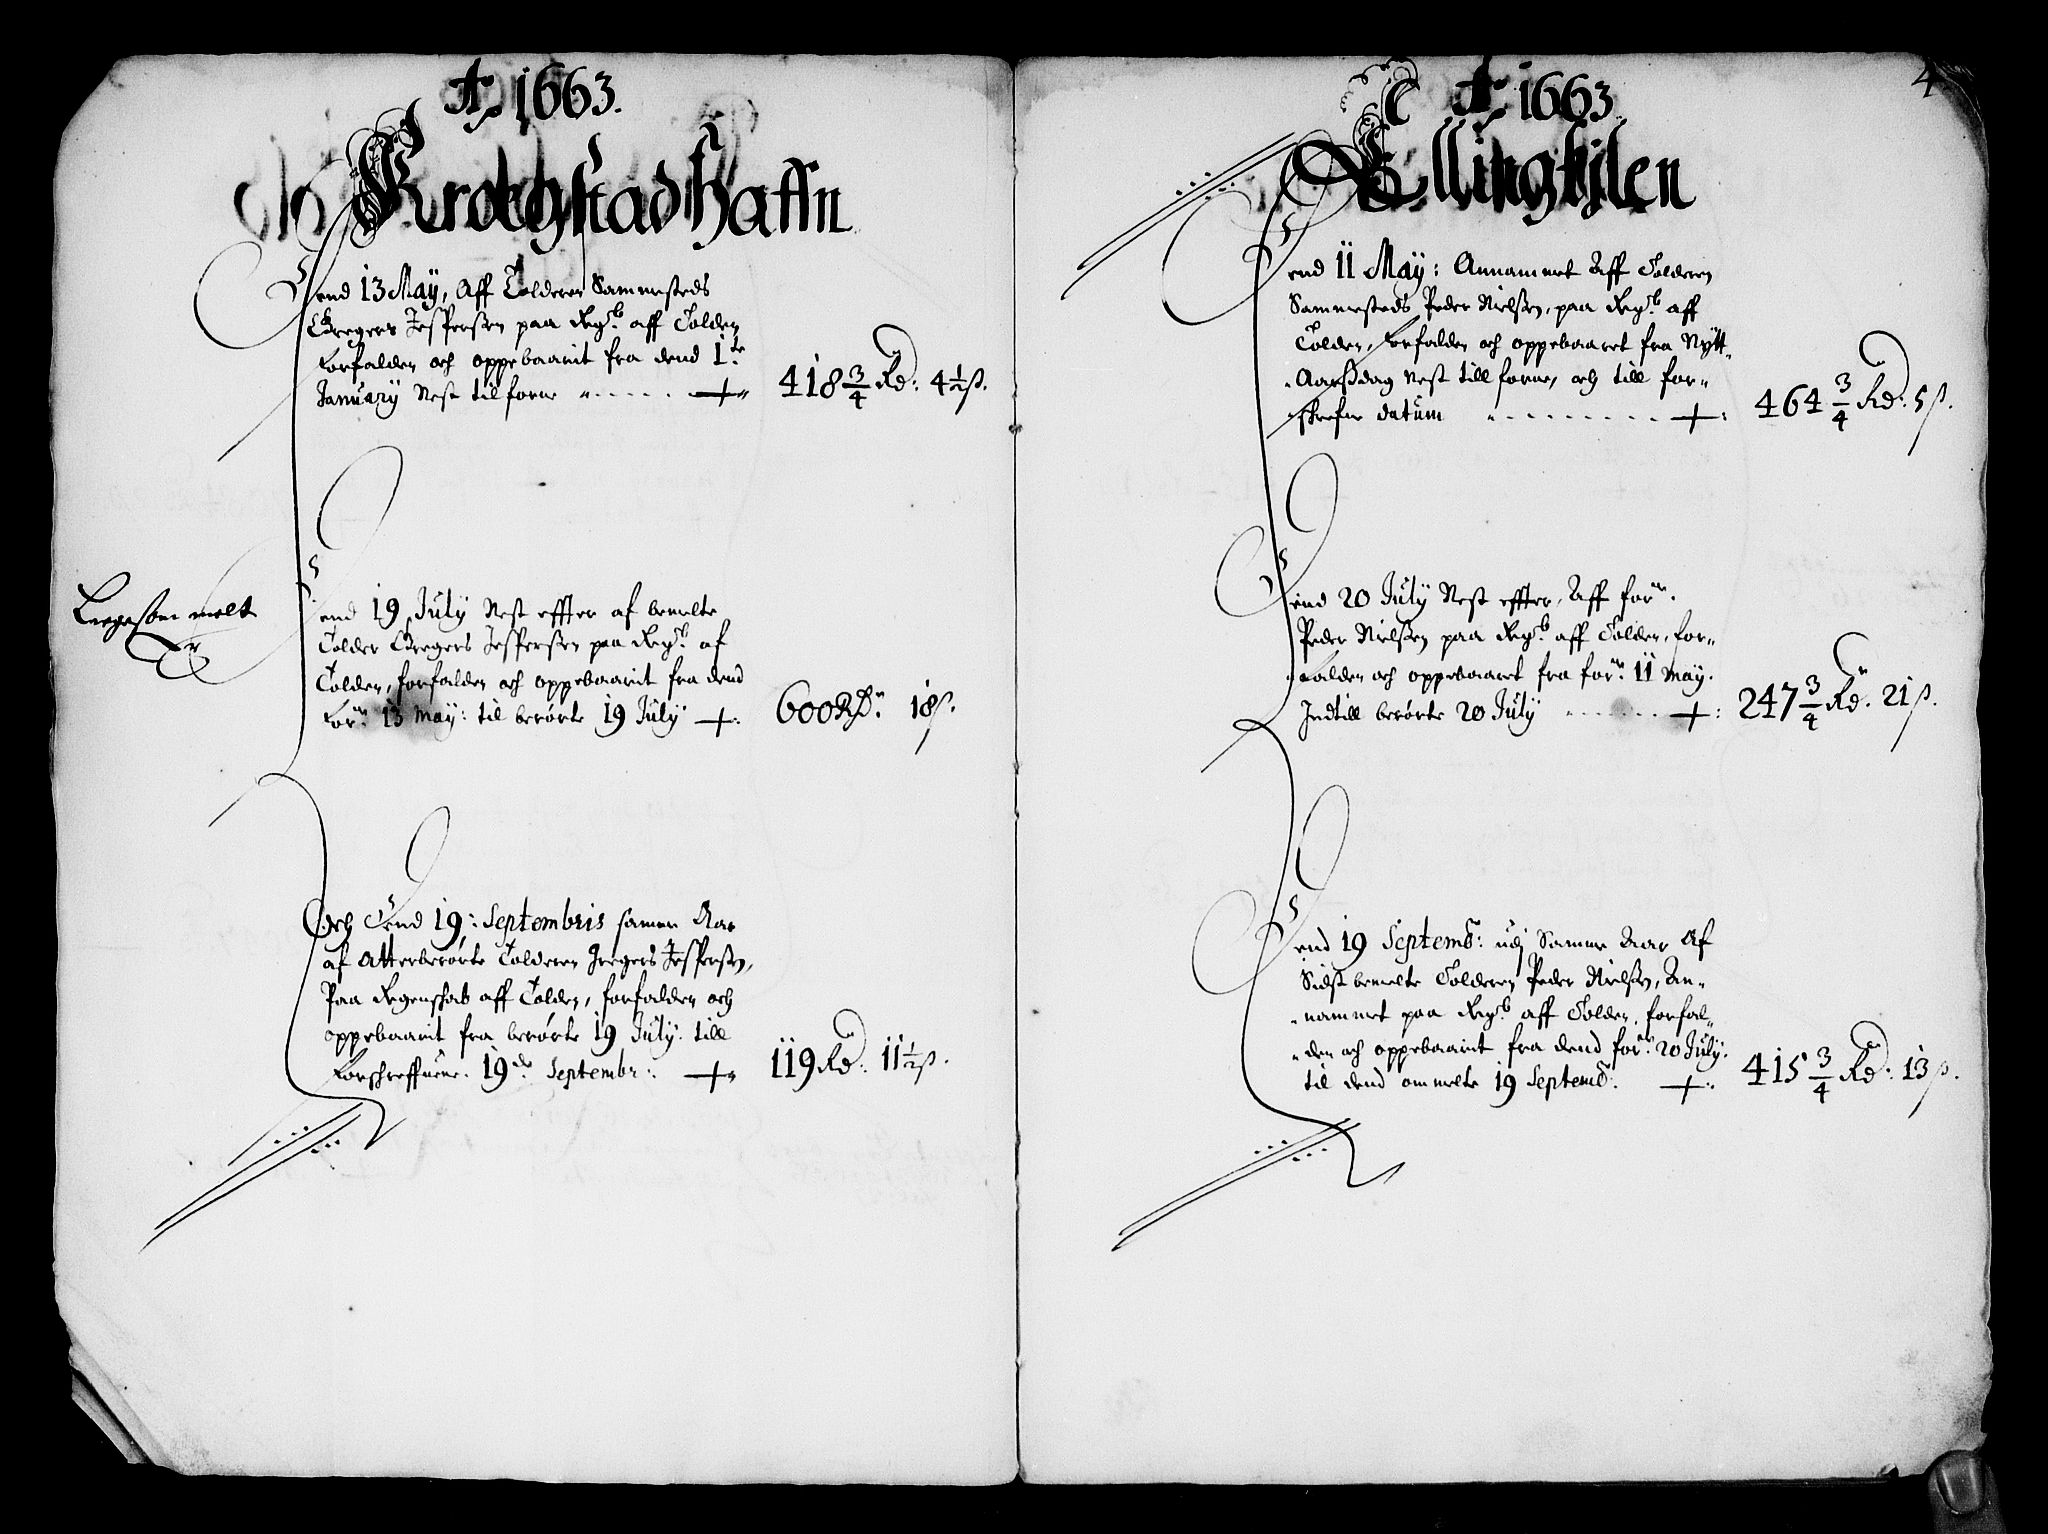 Ao 1663.
Krochstadhaffn
Dend 13 May, Aff Tolderen Sammesteds
Gregers Jespersen paa Regsb. aff Tolden
forfalden och oppebaarit fra dend 1te
January Nest tilforne 418 3/4 Rd: 4 1/2 ß.
Dend 19 July Nest effter af bemelte
Tolder Gregers Jespersen paa Regsb. af
Tolden, forfalden och oppebaarit fra dend
forne 13 May: til berørte 19 July 600 Rdr. 18 ß.
Och Dend 19: Septembris samme Aar
af Atterberørte Tolderen Gregers Jespersen,
Paa Regenschab aff Tolden, forfalden och
oppebaarit fra berørte 19 July. till
forschreffuene. 19de Septembr: 119 Rd: 11 1/2 ß.
4
Ao 1663
Ellingkilen
Dend 11 May: Annammet Aff Tolderen
Sammesteds Peder Nielsen, paa Regsb. aff
Tolden, forfalden och oppebaaret fra Nytt-
Aarsdag Nest till forne, och till for-
skrefne datum 464 3/4 Rd: 5 ß.
Dend 20 July Nest effter, Aff forne.
Peder Nielsen paa Regsb. aff Tolden, for-
falden och oppebaaret fra forne 11 May.
Indtill berørte 20 July 247 3/4 Rd. 21 ß.
Dend 19 Septemb: udj Samme Aar Af
Sidst bemelte Tolderen Peder Nielsen, An-
nammet paa Regsb. aff Tolden, forfal-
den och oppebaarit fra dend forne 20 July.
til dend ommelte 19 Septemb: 415 3/4 Rd: 13 ß.